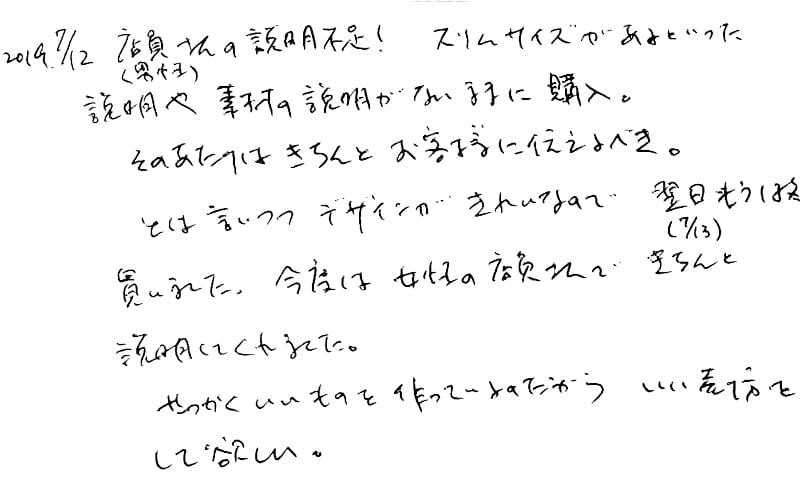 2019.7/12 店員さんの説明不足! スリムサイズがあるといった
(男性)
説明や素材の説明がないままに購入。
そのあたりはきちんとお客様に伝えるべき。
とは言いつつデザインがきれいなので 翌日もう1枚
(7/13)
買いました。今度は女性の店員さんできちんと
説明してくれました。
せっかくいいものを作っているのだから いい売り方を
して欲しい。